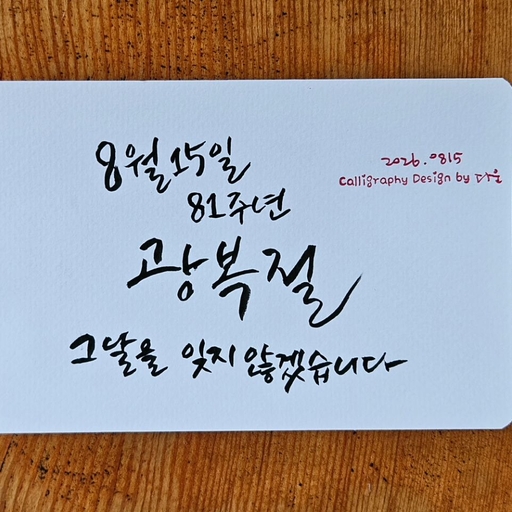 8월 15일
81주년
광복절
그날을 잊지 않겠습니다
2026.0815
Calligraphy Design by 다울